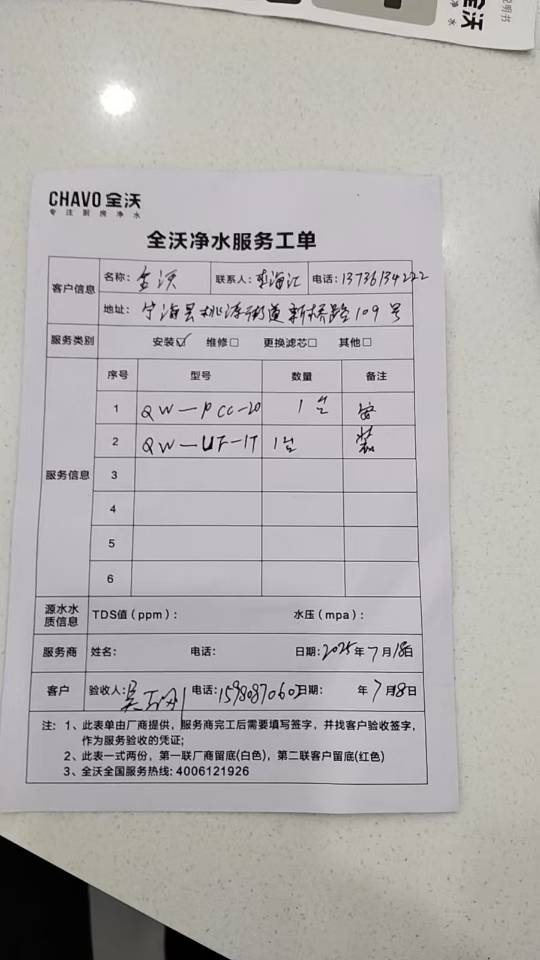 全沃
净水
说明书
CHAVO 全沃
专注厨房净水
全沃净水服务工单
客户信息
名称：全沃 联系人：海江 电话：13736134222
地址：宁海县桃源街道新桥路109号
服务类别 安装☑ 维修□ 更换滤芯□ 其他□
服务信息
序号 型号 数量 备注
1 QW—PCC-20 1台 安
2 QW—UF-1T 1台 装
3
4
5
6
源水水质信息 TDS值（ppm）： 水压（mpa）：
服务商 姓名： 电话： 日期：2025年7月18日
客户 验收人：吴 电话：15980870602 日期： 年7月8日
注：1、此表单由厂商提供，服务商完工后需要填写签字，并找客户验收签字，
作为服务验收的凭证；
2、此表一式两份，第一联厂商留底(白色)，第二联客户留底(红色)
3、全沃全国服务热线：4006121926